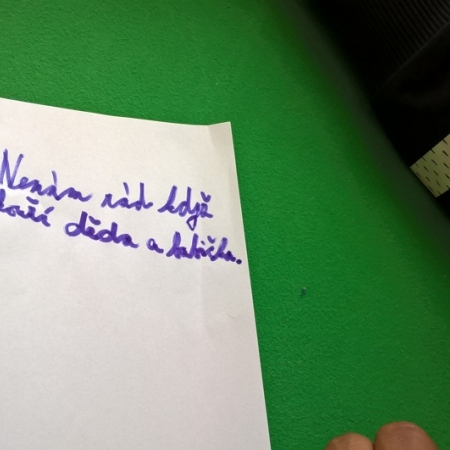 Nemám rád když
kouří děda a babička.